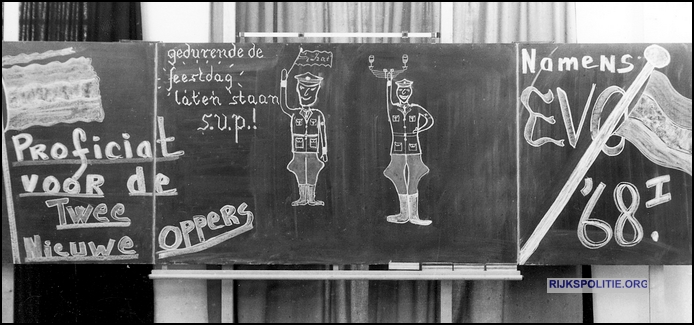 gedurende de
feestdag
laten staan
s.v.p.!
Proficiat
voor de
Twee
Nieuwe
OPPERS
Namens
EVC
'68.I
RIJKSPOLITIE.ORG